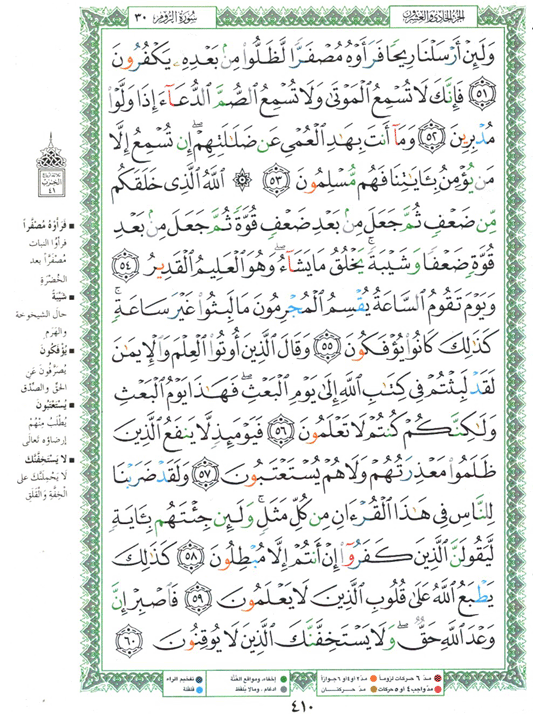 الجزء الحادي والعشرون
سورة الروم ٣٠
وَلَئِنْ أَرْسَلْنَا رِيحًا فَرَأَوْهُ مُصْفَرًّا لَّظَلُّوا۟ مِنۢ بَعْدِهِۦ يَكْفُرُونَ
٥١ فَإِنَّكَ لَا تُسْمِعُ ٱلْمَوْتَىٰ وَلَا تُسْمِعُ ٱلصُّمَّ ٱلدُّعَآءَ إِذَا وَلَّوْا۟
مُدْبِرِينَ ٥٢ وَمَآ أَنتَ بِهَـٰدِ ٱلْعُمْىِ عَن ضَلَـٰلَتِهِمْ ۖ إِن تُسْمِعُ إِلَّا
مَن يُؤْمِنُ بِـَٔايَـٰتِنَا فَهُم مُّسْلِمُونَ ٥٣ ۞ ٱللَّهُ ٱلَّذِى خَلَقَكُم
مِّن ضَعْفٍ ثُمَّ جَعَلَ مِنۢ بَعْدِ ضَعْفٍ قُوَّةً ثُمَّ جَعَلَ مِنۢ بَعْدِ
قُوَّةٍ ضَعْفًا وَشَيْبَةً ۚ يَخْلُقُ مَا يَشَآءُ ۖ وَهُوَ ٱلْعَلِيمُ ٱلْقَدِيرُ ٥٤
وَيَوْمَ تَقُومُ ٱلسَّاعَةُ يُقْسِمُ ٱلْمُجْرِمُونَ مَا لَبِثُوا۟ غَيْرَ سَاعَةٍ ۚ
كَذَٰلِكَ كَانُوا۟ يُؤْفَكُونَ ٥٥ وَقَالَ ٱلَّذِينَ أُوتُوا۟ ٱلْعِلْمَ وَٱلْإِيمَـٰنَ
لَقَدْ لَبِثْتُمْ فِى كِتَـٰبِ ٱللَّهِ إِلَىٰ يَوْمِ ٱلْبَعْثِ ۖ فَهَـٰذَا يَوْمُ ٱلْبَعْثِ
وَلَـٰكِنَّكُمْ كُنتُمْ لَا تَعْلَمُونَ ٥٦ فَيَوْمَئِذٍ لَّا يَنفَعُ ٱلَّذِينَ
ظَلَمُوا۟ مَعْذِرَتُهُمْ وَلَا هُمْ يُسْتَعْتَبُونَ ٥٧ وَلَقَدْ ضَرَبْنَا
لِلنَّاسِ فِى هَـٰذَا ٱلْقُرْءَانِ مِن كُلِّ مَثَلٍ ۚ وَلَئِن جِئْتَهُم بِـَٔايَةٍ
لَّيَقُولَنَّ ٱلَّذِينَ كَفَرُوٓا۟ إِنْ أَنتُمْ إِلَّا مُبْطِلُونَ ٥٨ كَذَٰلِكَ
يَطْبَعُ ٱللَّهُ عَلَىٰ قُلُوبِ ٱلَّذِينَ لَا يَعْلَمُونَ ٥٩ فَٱصْبِرْ إِنَّ
وَعْدَ ٱللَّهِ حَقٌّ ۖ وَلَا يَسْتَخِفَّنَّكَ ٱلَّذِينَ لَا يُوقِنُونَ ٦٠
الحزب
٤١
فَرَأَوْهُ مُصْفَرًّا
فرأوا النبات
مُصْفَرًّا بعد
الخُضْرَة
شَيْبَةً
حال الشيخوخة
والهَرَم
يُؤْفَكُونَ
يُصْرَفُون عَنِ
الحقّ والصِّدْق
يُسْتَعْتَبُونَ
يُطْلَبُ مِنْهُمْ
إرضاؤه تعالى
لا يَسْتَخِفَّنَّكَ
لا يَحْمِلَنَّكَ على
الخِفّةِ والقَلَق
مدّ ٦ حركات لزوماً
مدّ ٢ أو ٤ أو ٦ جوازاً
إخفاء، ومواقع الغُنَّة
تفخيم الراء
مدّ واجب ٤ أو ٥ حركات
مدّ حركتان
إدغام، وما لا يلفظ
قلقلة
٤١٠